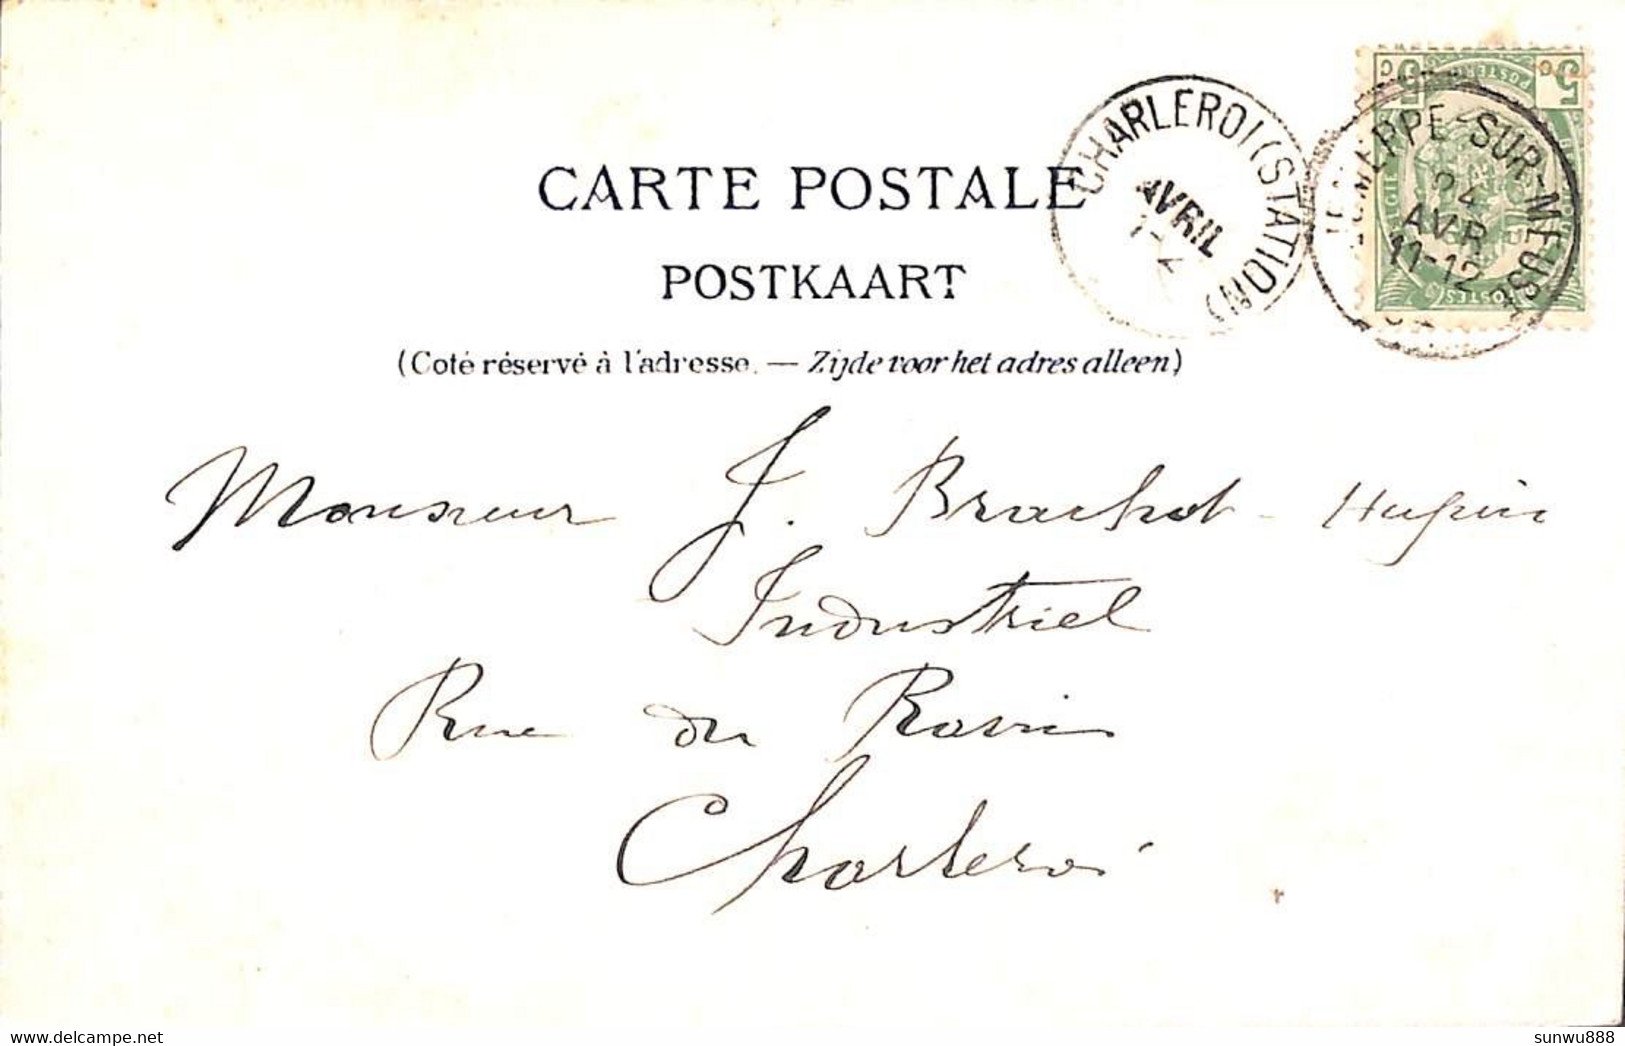 CARTE POSTALE
POSTKAART
(Coté réservé à l'adresse. — Zijde voor het adres alleen)
CHARLEROI (STATION)
AVRIL
JEMEPPE-SUR-MEUSE
24
AVR
11-12
5 c c 5
POSTES
Monsieur J. Brachot - Hupin
Industriel
Rue du Ravin
Charleroi
sunwu888